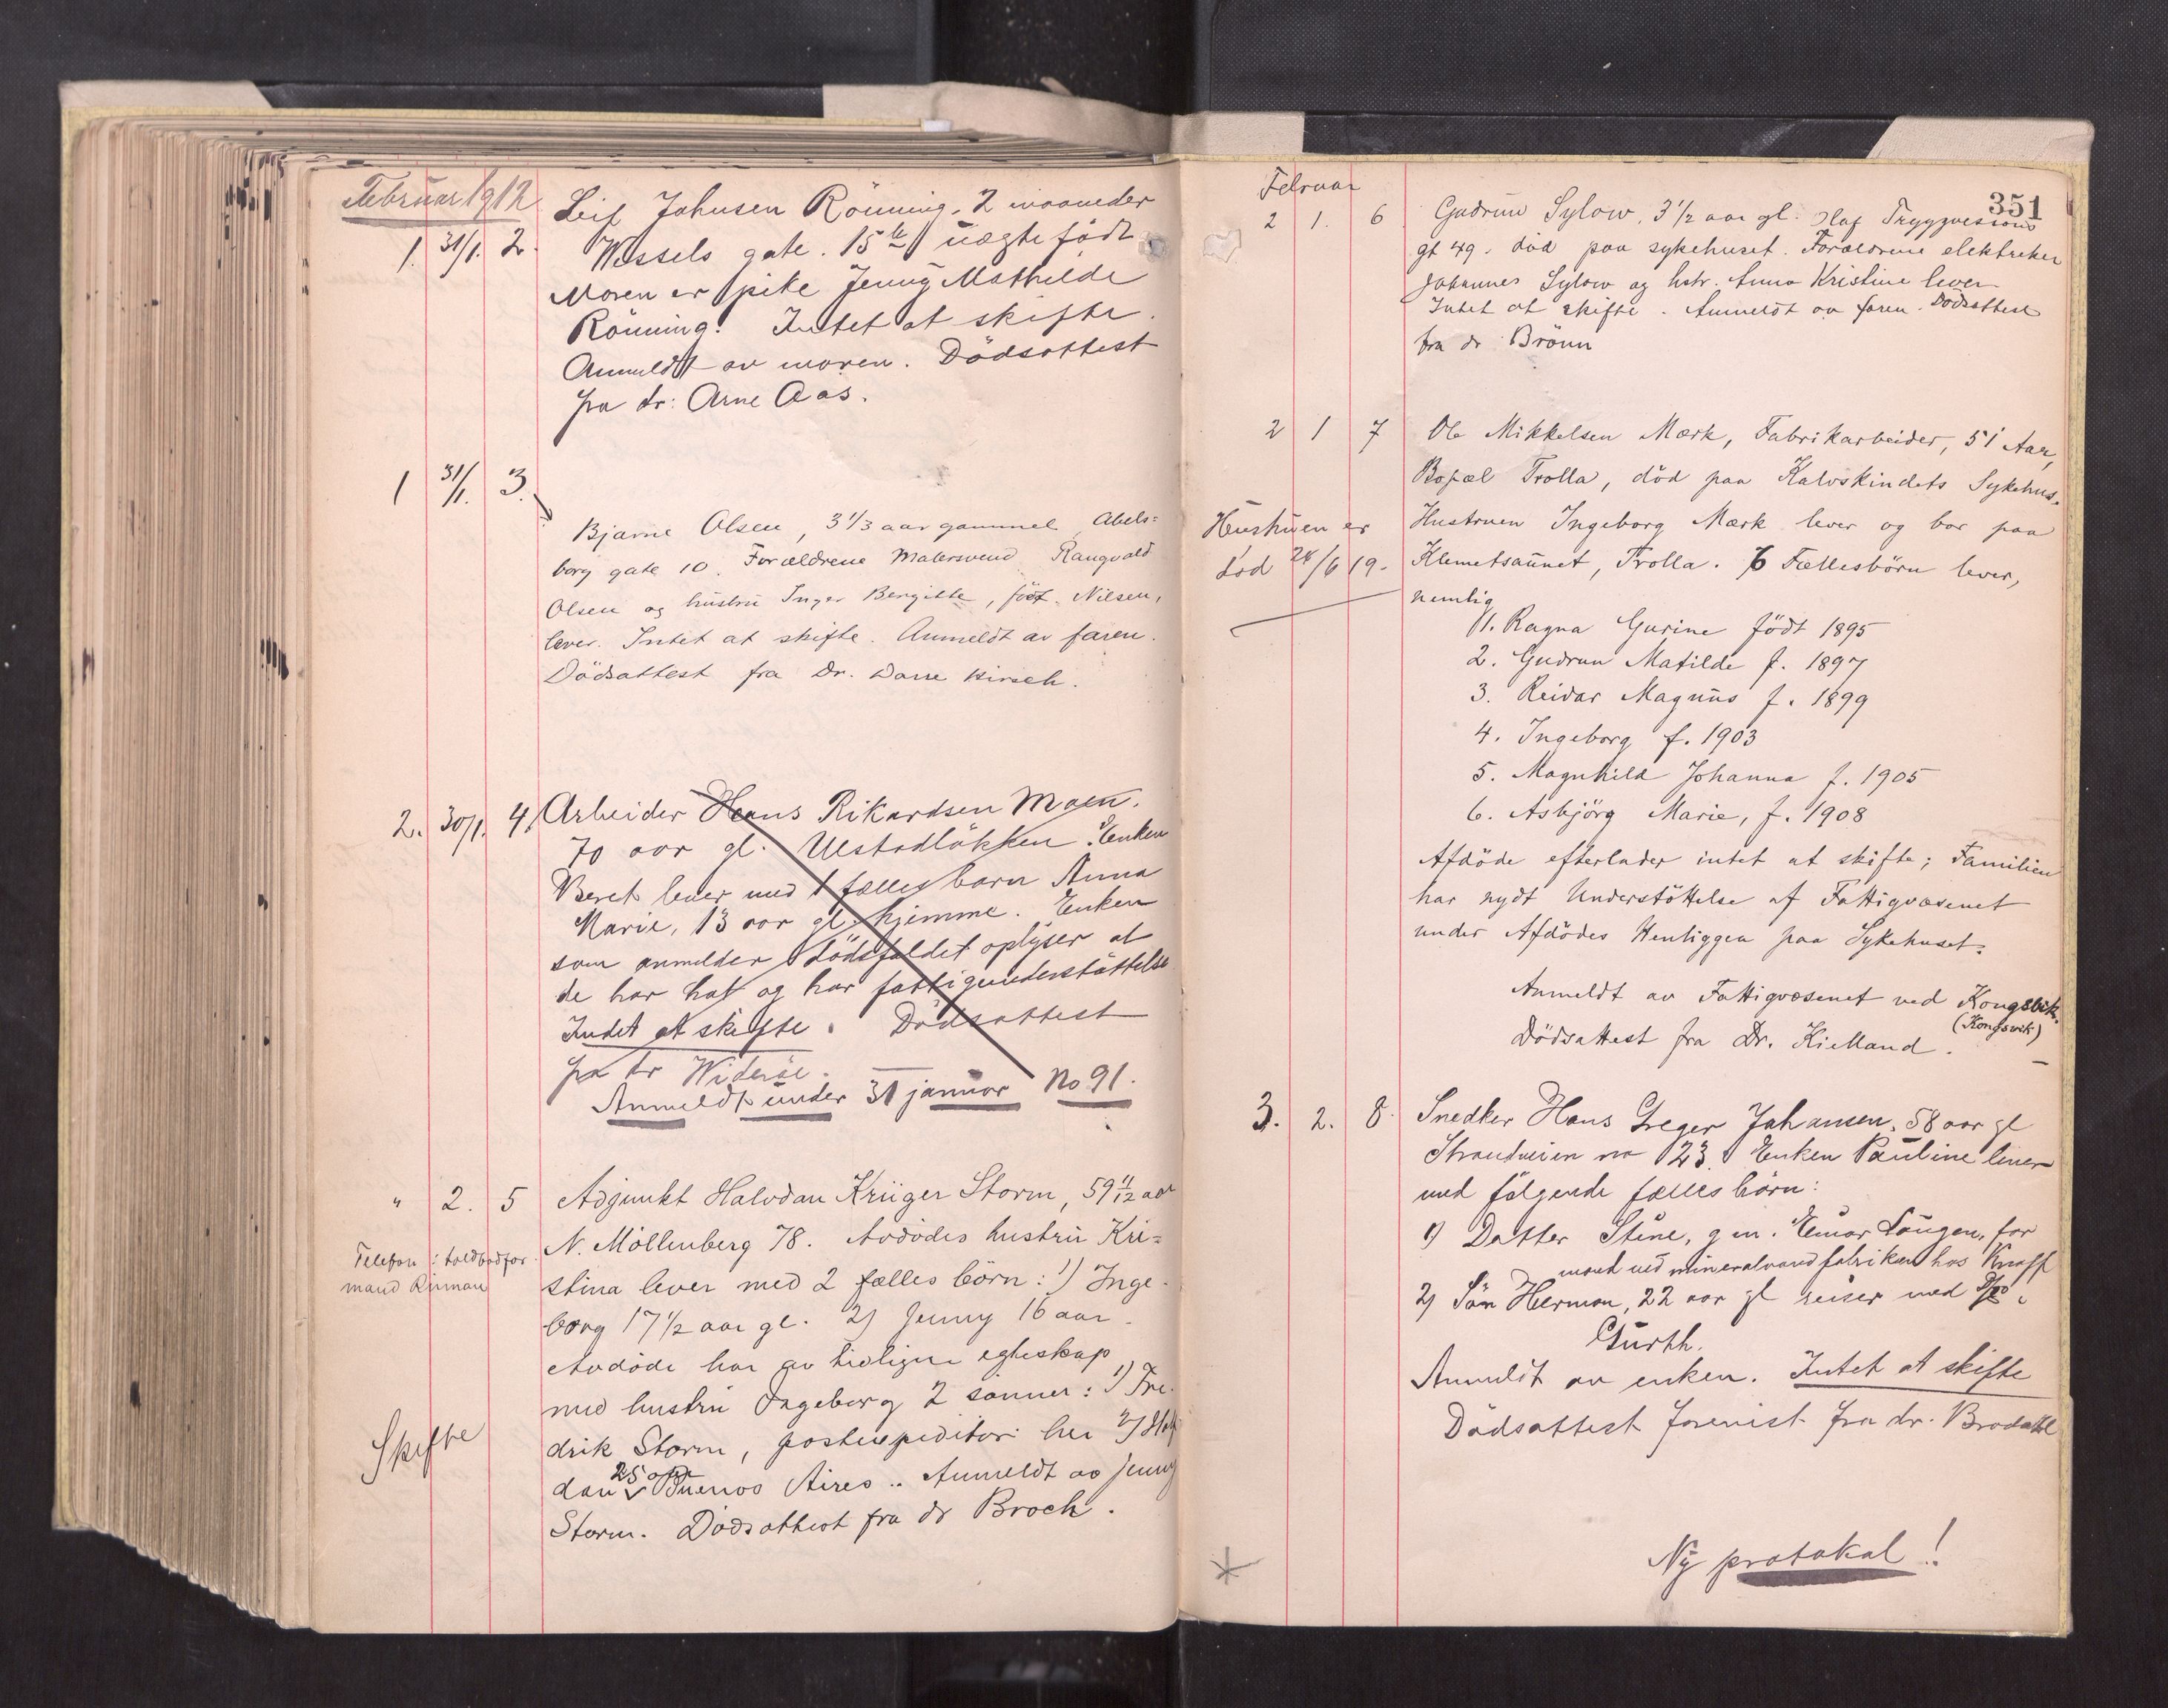 Februar 1912
1. 31/1. 2.
Leif Johnsen Rönning, 2 maaneder
Wessels gate. 15 II uægte født
Moren er pike Jenny Mathilde
Rönning. Intet at skifte.
Anmeldt av moren. Dödsattest
fra dr: Arne Aas.
1 31/1. 3.
Bjarne Olsen, 3 1/3 aar gammel, Abels=
borg gate 10. Forældrene Malersvend Rangvald
Olsen og hustru Inger Bergitte, föd. Nilsen,
lever. Intet at skifte. Anmeldt av faren.
Dödsattest fra Dr. Darre Hirsch.
2. 30/1. 4.
Arbeider Hans Rikardsen Moen.
70 aar gl. Ulstadløkken. Enken
Beret lever med 1 fælles barn Anna
Marie, 13 aar gl. hjemme. Enken
som anmelder dödsfaldet oplyser at
de har hat og har fattigunderstöttelse
Intet at skifte. Dödsattest
fra dr Wideröe.
Anmeldt under 31 januar No 91.
" 2. 5
Adjunkt Halvdan Krüger Storm, 59 11/12 aar
N. Möllenberg 78. Avdödes hustru Kri=
stina lever med 2 fælles börn: 1) Inge-
borg 17 1/2 aar gl. 2) Jenny 16 aar.
Avdöde har av tidligere egteskap
med hustru Ingeborg 2 sönner: 1) Fre-
drik Storm, postexpeditör her 2) Half
dan 25 aar Buenos Aires.. Anmeldt av Jenny
Storm. Dödsattest fra dr Broch.
Telefon: toldbodfor
mand Rinnan
Skifte
351
Februar
2 1. 6
Gudrun Sylow, 3 1/2 aar gl. Olaf Trygvesons
gt 49. död paa sykehuset. Forældrene elektriker
Johannes Sylow og hstr. Anna Kristine lever
Intet at skifte. Anmeldt av faren. Dödsattest
fra dr Brönn
2 1 7
Ole Mikkelsen Mærk, Fabrikarbeider, 51 Aar,
Bopæl Trolla, död paa Kalvskindets Sykehus.
Hustruen Ingeborg Mærk lever og bor paa
Klemetsaunet, Trolla. 6 Fællesbörn lever,
nemlig
1. Ragna Gurine födt 1895
2. Gudrun Matilde f. 1897
3. Reidar Magnus f. 1899
4. Ingeborg f. 1903
5. Magnhild Johanna f. 1905
6. Asbjörg Marie, f. 1908
Hustruen er
död 24/6 19.
Afdöde efterlader intet at skifte; Familien
har nydt Understöttelse af Fattigvæsenet
under Afdödes Henliggen paa Sykehuset.
Anmeldt av Fattigvæsenet ved Kongsvik.
(Kongsvik)
Dödsattest fra Dr. Kielland.
3. 2. 8.
Snedker Hans Greger Johansen, 58 aar gl
Strandveien no 23. Enken Pauline lever
med fölgende fælles börn:
1) Datter Stine, g m. Einar Laugen, for
mand ved mineralvand fabriken hos Knoff
2) Sön Herman, 22 aar gl reiser med
Gurth.
Anmeldt av enken. Intet at skifte
Dödsattest forevist fra dr. Brodahl
Ny protokol!